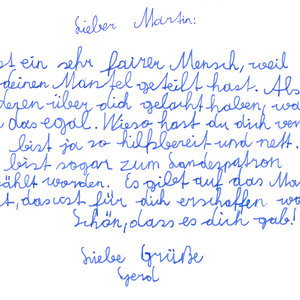 Lieber Martin:
ist ein sehr fairer Mensch, weil
deinen Mantel geteilt hast. Als
deren über dich gelacht haben, wa
das egal. Wieso hast du dich ver
bist ja so hilfsbereit und nett.
bist sogar zum Landespatron
ählt worden. Es gibt auf das Ma
t, das ist für dich erschaffen wo
Schön, dass es dich gab!
Liebe Grüße
Gerd